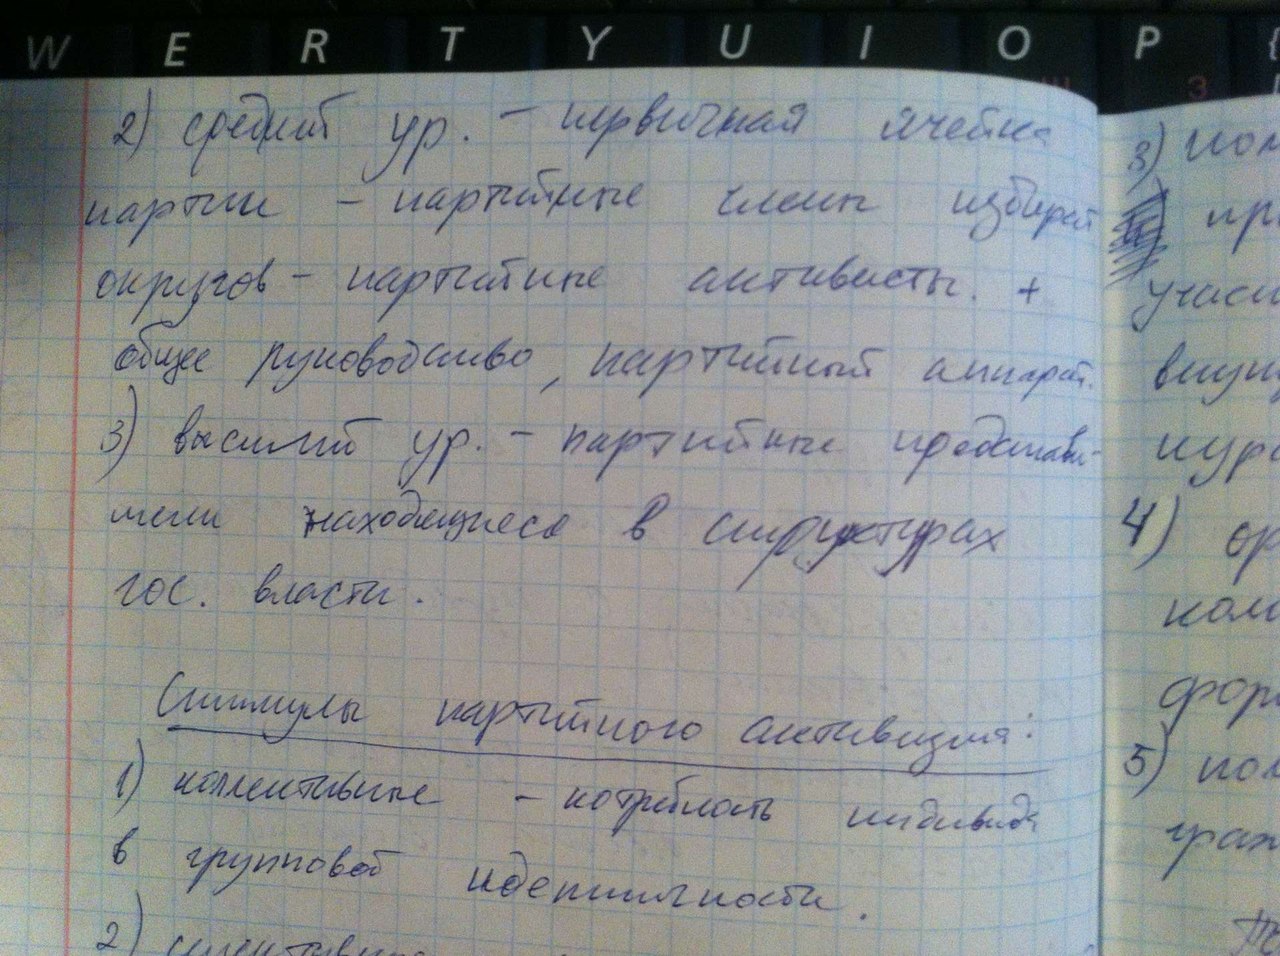 W E R T Y U I O P {
Ш З
2) средний ур. – первичная ячейка
партии – партийные члены избират
округов – партийные активисты. +
общее руководство, партийный аппарат.
3) высший ур. – партийные представи-
тели находящиеся в структурах
гос. власти.
Стимулы партийного активизма:
1) коллективные – потребность индивида
в групповой идентичности.
2) селективные
3) пол
пр
участ
внут
кур
4) ор
ком
форм
5) пол
граж